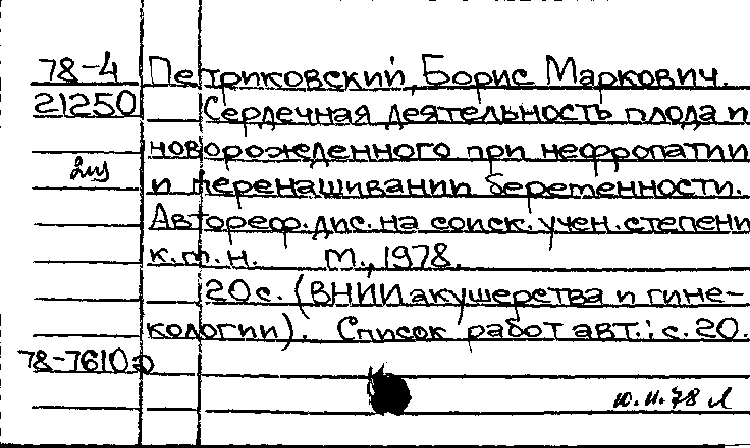 78-4 Петриковский, Борис Маркович.
21250 Сердечная деятельность плода и
новорожденного при нефропатии
и перенашивании беременности.
Автореф. дис. на соиск. учен. степени
к.м.н. М., 1978.
20 с. (ВНИИ акушерства и гине-
кологии). Список работ авт.: с. 20.
78-7610